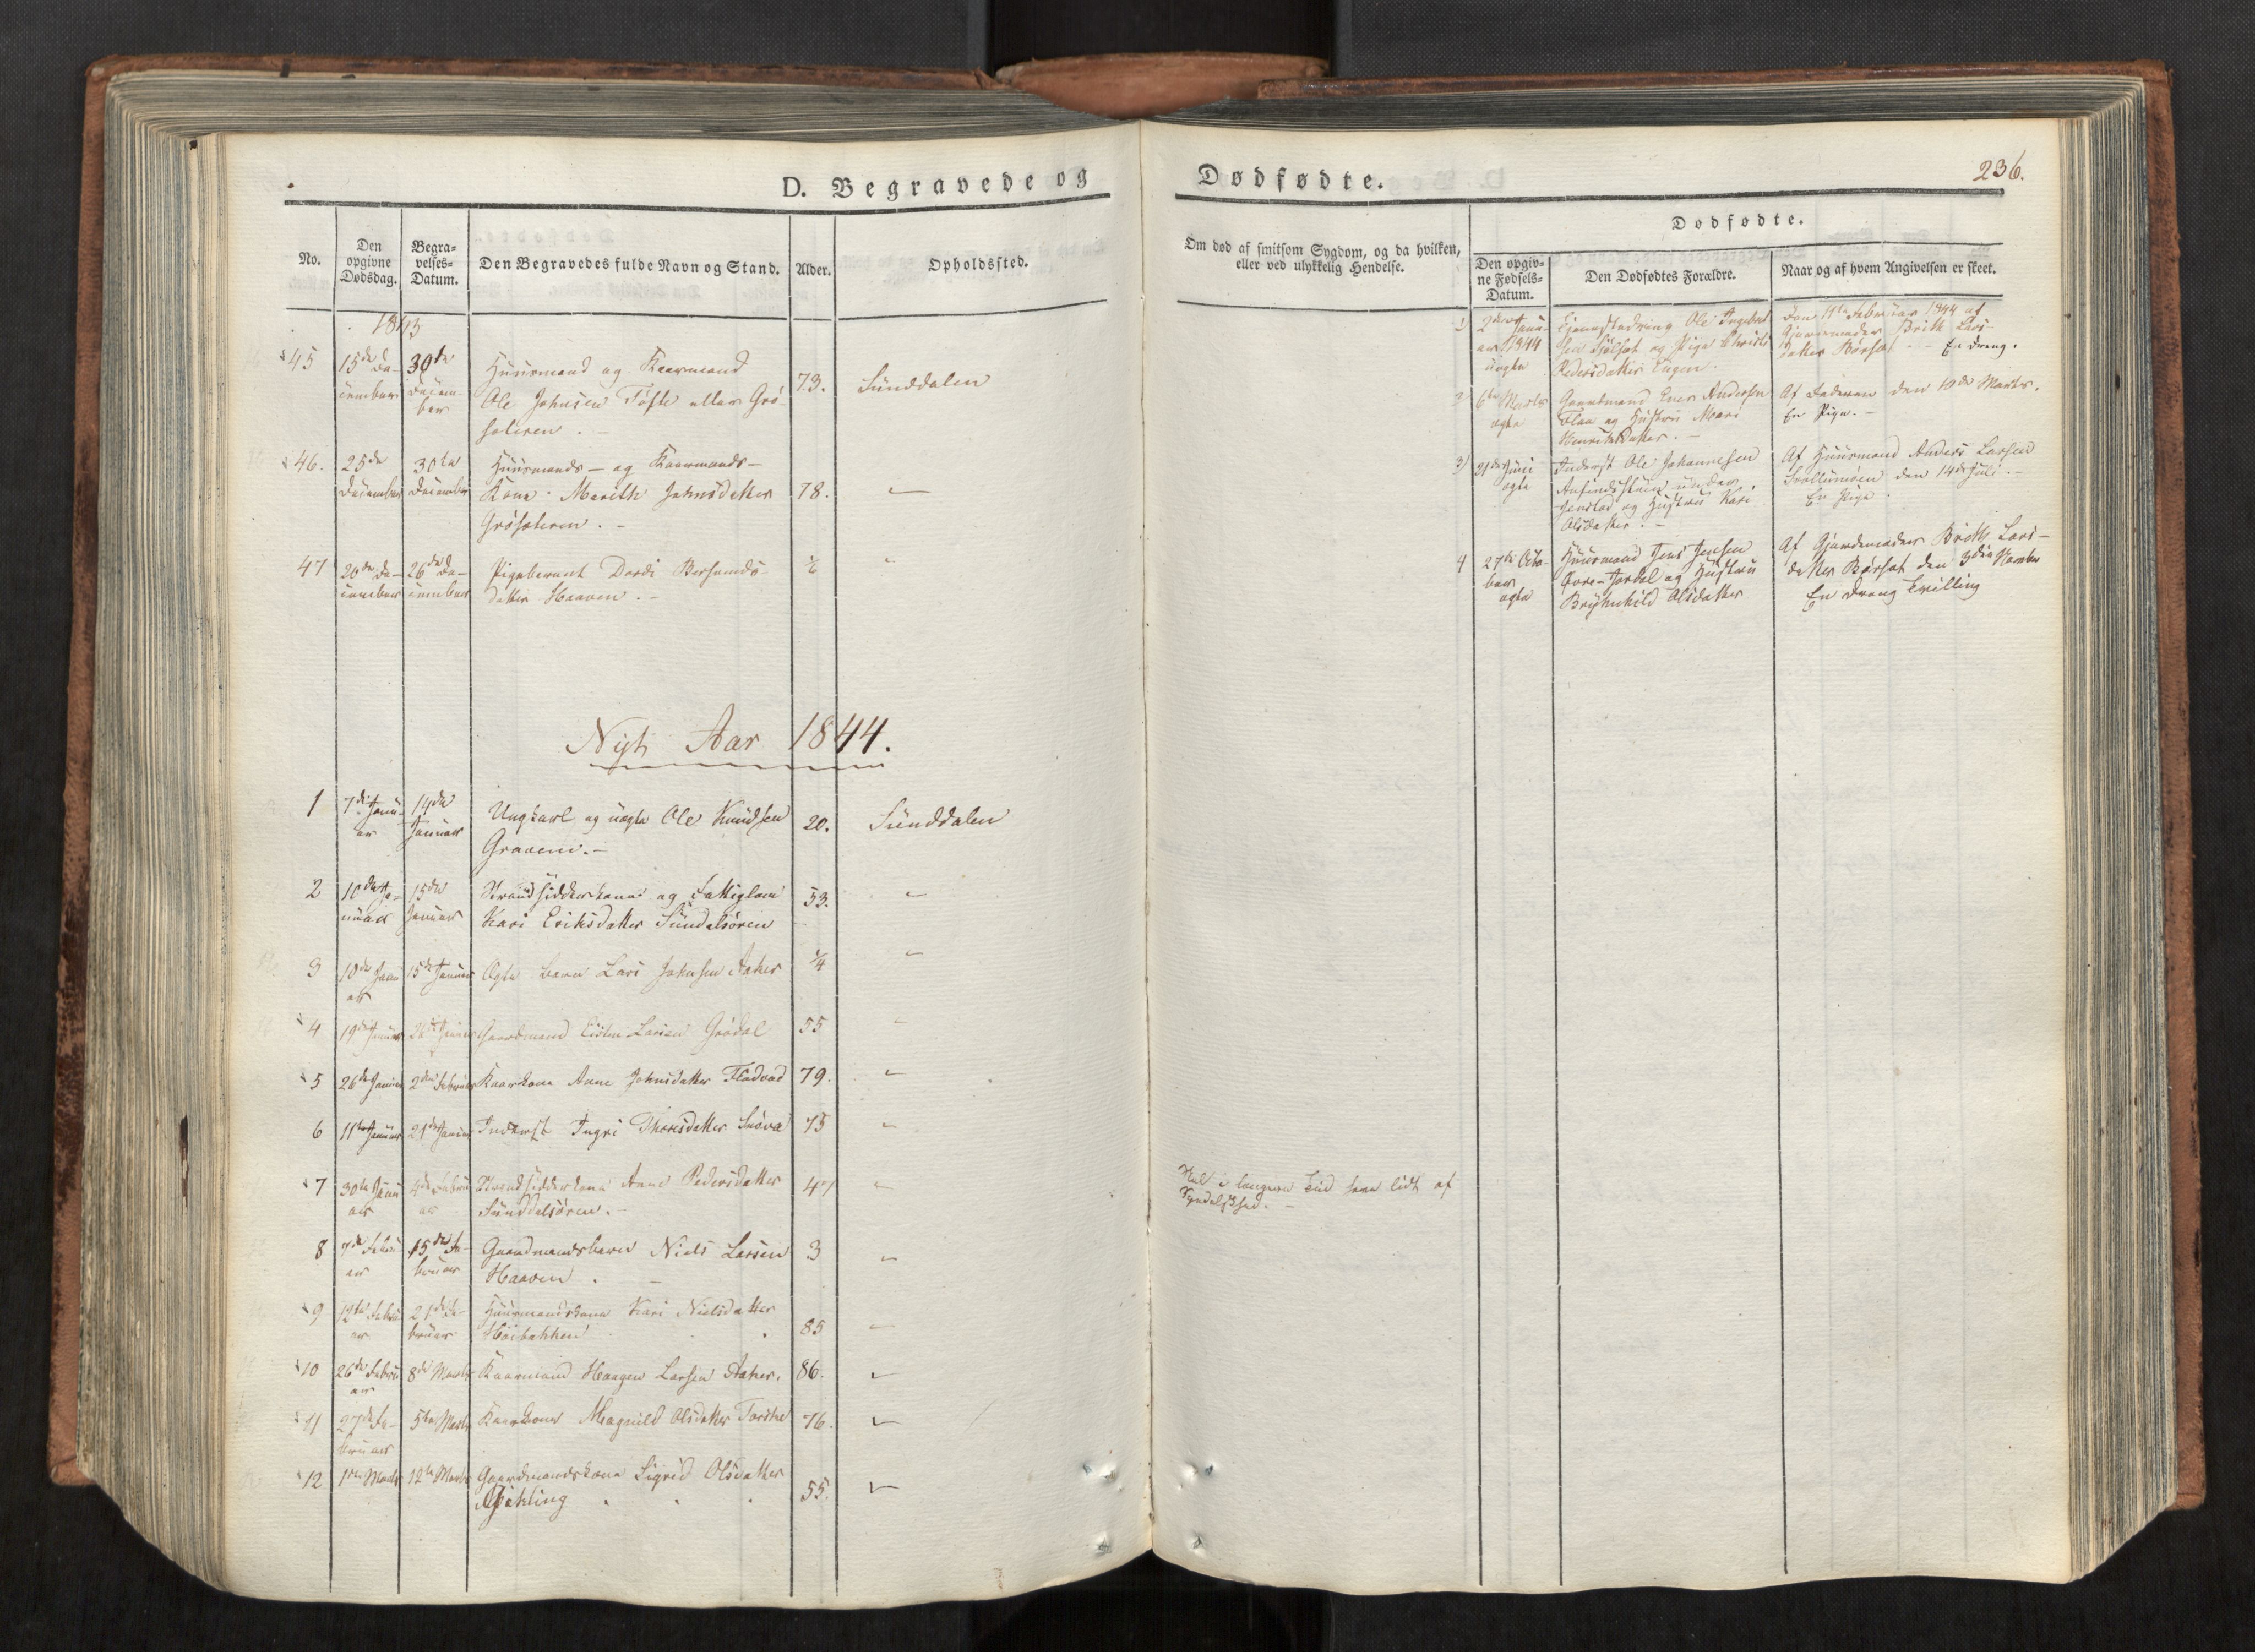 D. Begravede og
No.
Den opgivne Dødsdag.
Begravelses-Datum.
Den Begravedes fulde Navn og Stand.
Alder.
Opholdssted.
1843
45 15de De- 30te Huusmand og Kaarmand
cember Decem- Ole Johnsen Tofte eller Grø- 73. Sunddalen
ber
46. 25de 30te Huusmands- og Kaarmands-
December December Kone Marith Johnsdatter 78. "
47 20de De- 26de De- Pigebarnet Dordi "
cember cember datter Haaven.
Nyt Aar 1844.
1 7de Janu- 14de Ungkarl og uægte Ole Knudsen 20. Sunddalen
ar Januar
2 10de Ja- 15de Strandsidderkone og Fattiglem 53. "
nuar Januar Kari Eriksdatter Sundalsøren
3 10de Janu 15de Januar Ægte barn Lars Johnsen Aaker 1/4 "
ar
4 19de Januar 26de Januar Gaardmand Larsen Grødal 55 "
5 26de Januar 2den Februar Kaarkone Anne Johnsdatter Fladvad 79. "
6 11te Januar 21de Januar Inderst Ingri Thoresdatter 75 "
7 30te Janu 4de Febru Strandsidderkone Anne Pedersdatter 47 "
ar ar Sunddalsøren.
8 7de Febru 15de Fe- Gaardmandsbarn Niels Larsen 3 "
ar bruar Haaven.
9 12te Febru 21de Fe- Huusmandskone Kari Nielsdatter
ar bruar Høibakken 85 "
10 26de Febru 8de Marts Kaarmand Haagen Larsen Aaker. 86. "
ar
11 27de Fe- 5te Marts Kaarkone Magnild Olsdatter 76. "
bruar
12 1ste Marts 12te Marts Gaardmandskone Sigrid Olsdatter
Gikling 55. "
Dødfødte.
236.
Om død af smitsom Sygdom, og da hvilken,
eller ved ulykkelig Hendelse.
Dødfødte.
Den opgiv-
ne Fødsels-
Datum.
Den Dødfødtes Forældre.
Naar og af hvem Angivelsen er skeet.
1) 2den Janu- Ole Ingebrigt Den 11te Februar 1844 af
ar 1844 og Pige Gjordemoder Brith Lars-
uægte Pedersdatter datter Børset En Dreng.
2) 6te Marts Gaardmand Ener Andersen Af Faderen den 10de Marts.
ægte Flaa og Hustru Mari En Pige.
3) 21de Juni Inderst Ole Johannesen Af Huusmand Anders Larsen
ægte under den 14de Juli.
og Hustru Kari En Pige
Olsdatter.
4 27de Octo- Huusmand Jens Jensen Af Gjordemoder Brith Lars-
ber og Hustru datter Børset den 3die
ægte Brynhild Olsdatter En Dreng Tvilling
i længere Tid have lidt af